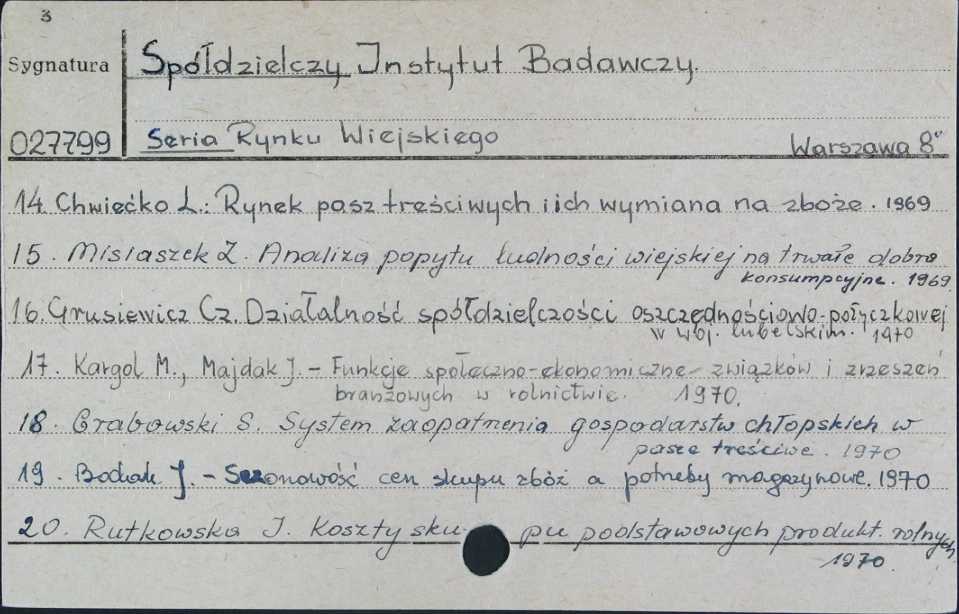 3
Sygnatura
Spółdzielczy Instytut Badawczy.
027799
Seria Rynku Wiejskiego
Warszawa 8°
14. Chwiećko L.: Rynek pasz treściwych i ich wymiana na zboże. 1969
15. Misiaszek Z. Analiza popytu ludności wiejskiej na trwałe dobra
konsumpcyjne. 1969
16. Grusiewicz Cz. Działalność spółdzielczości oszczędnościowo-pożyczkowej
w woj. lubelskim. 1970
17. Kargol M., Majdak J. - Funkcje społeczno-ekonomiczne związków i zrzeszeń
branżowych w rolnictwie. 1970.
18. Grabowski S. System zaopatrzenia gospodarstw chłopskich w
pasze treściwe. 1970
19. J. - Sezonowość cen skupu zbóż a potrzeby magazynowe. 1970
20. Rutkowska I. Koszty skupu podstawowych produkt. rolnych
1970.